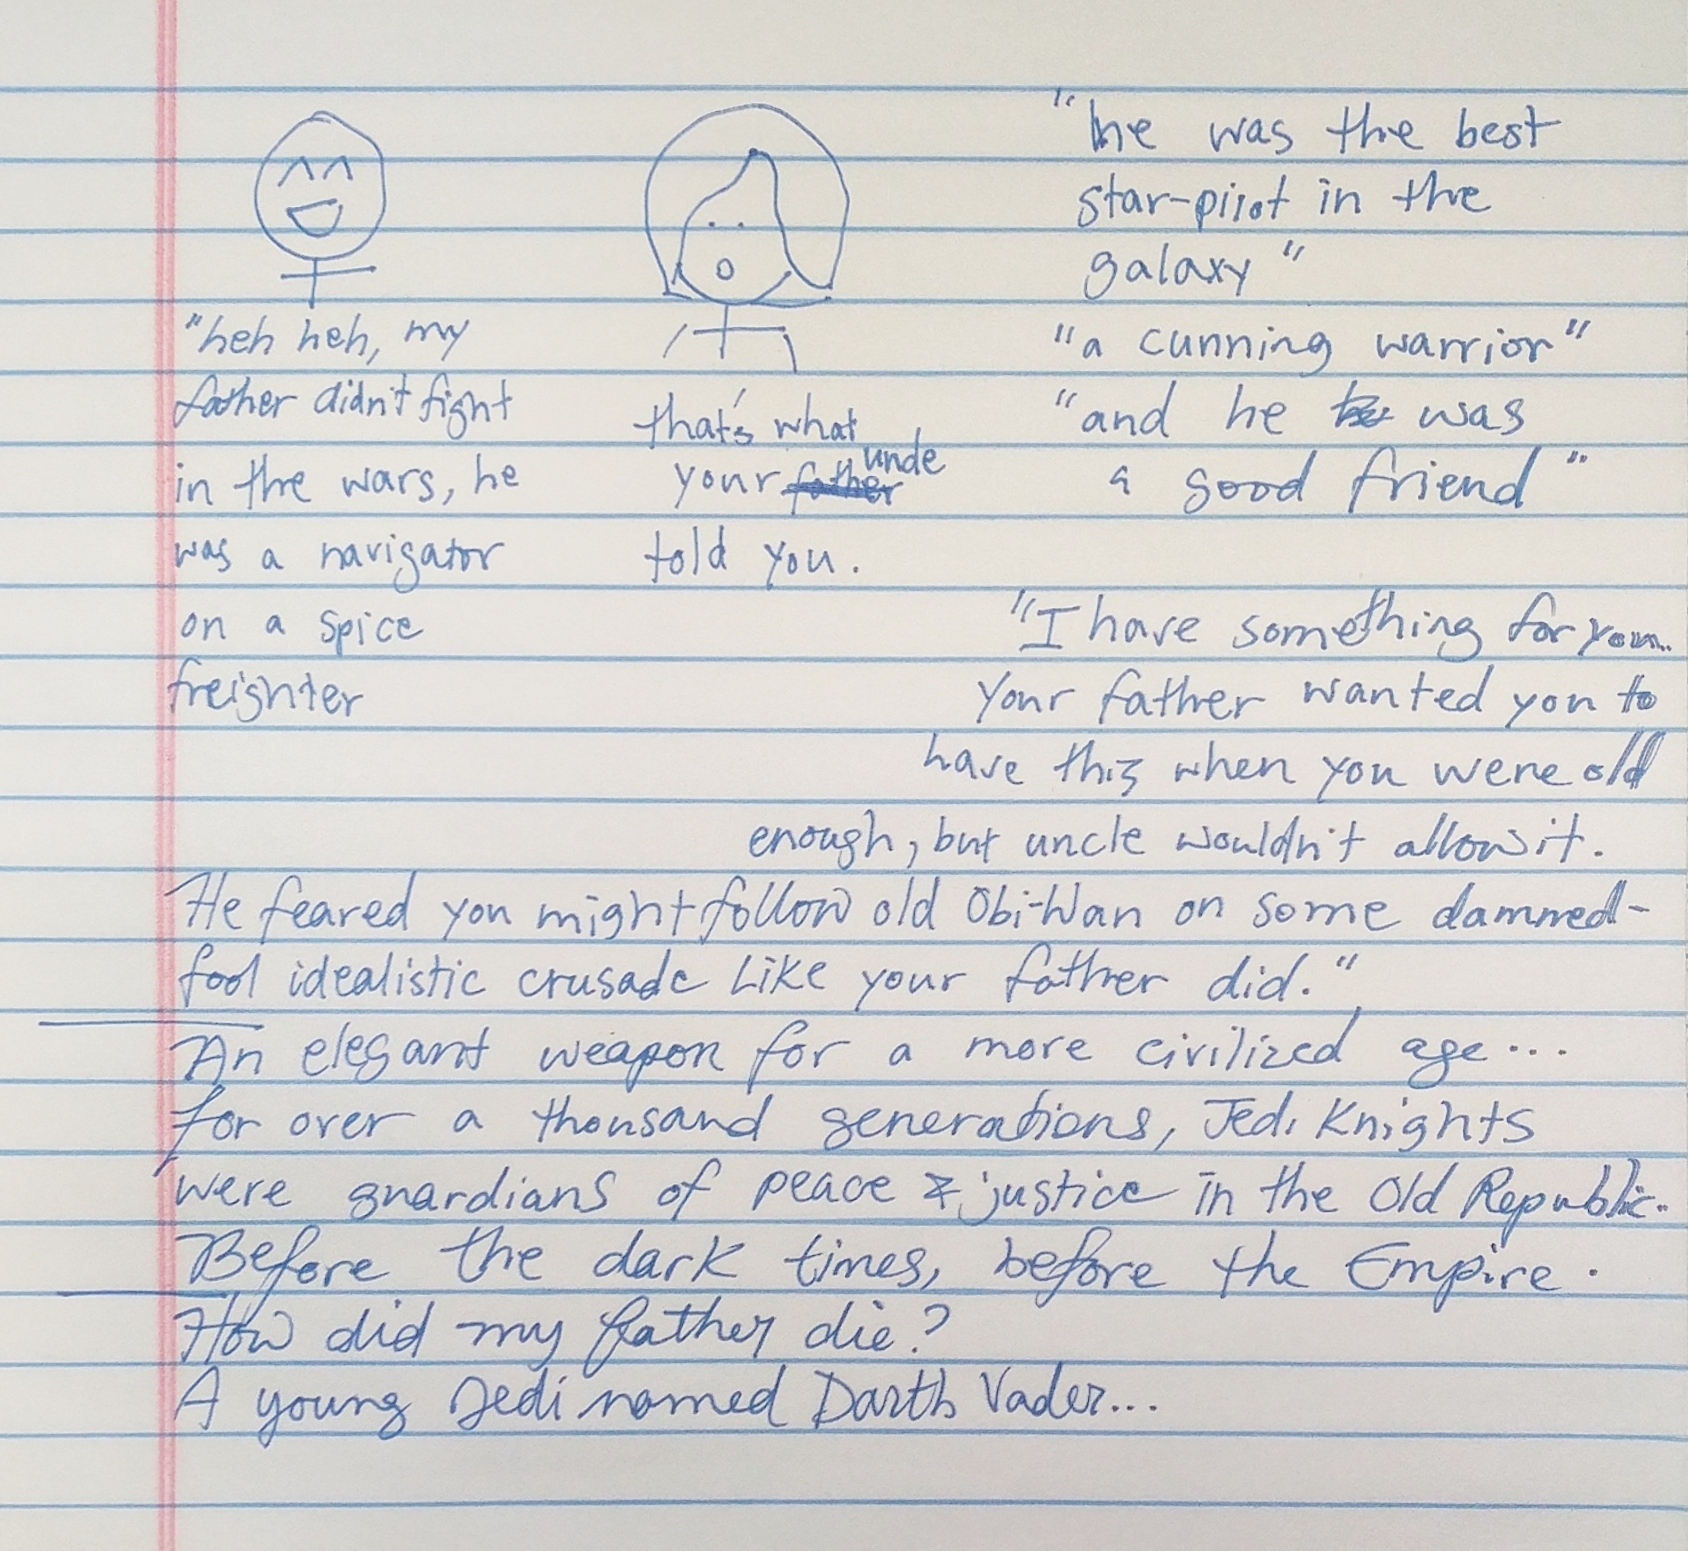 "heh heh, my
father didn't fight
in the wars, he
was a navigator
on a spice
freighter
that's what
your father uncle
told you.
"he was the best
star-pilot in the
galaxy"
"a cunning warrior"
"and he was
a good friend"
"I have something for you...
Your father wanted you to
have this when you were old
enough, but uncle wouldn't allow it.
He feared you might follow old Obi-Wan on some damned-
fool idealistic crusade Like your father did."
An elegant weapon for a more civilized age...
for over a thousand generations, Jedi Knights
were guardians of peace & justice in the Old Republic.
Before the dark times, before the Empire.
How did my father die?
A young Jedi named Darth Vader...